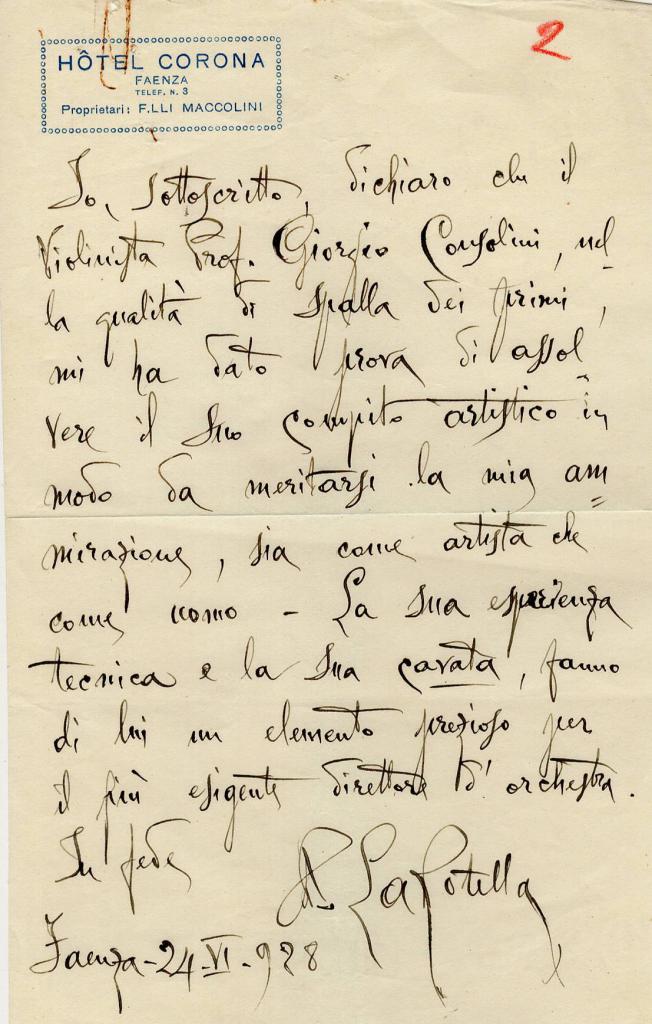 2
HÔTEL CORONA
FAENZA
TELEF. N. 3
Proprietari: F.LLI MACCOLINI
Io, sottoscritto, dichiaro che il
Violinista Prof. Giorgio Consolini, nel
la qualità di spalla dei primi,
mi ha dato prova di assol
vere il suo compito artistico in
modo da meritarsi la mia am
mirazione, sia come artista che
come uomo - La sua esperienza
tecnica e la sua cavata, fanno
di lui un elemento prezioso per
il più esigente direttore d'orchestra.
In fede
A. La Rotella
Faenza - 24 - VI - 928